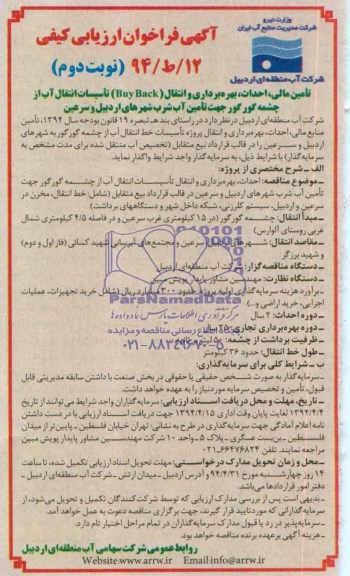 وزارت نیرو
شرکت مدیریت منابع آب ایران
شرکت آب منطقه‌ای اردبیل
آگهی فراخوان ارزیابی کیفی
۹۴/ط/۱۲ (نوبت دوم)
تأمین مالی، احداث، بهره‌برداری و انتقال (Buy Back) تأسیسات انتقال آب از
چشمه گورگور جهت تأمین آب شرب شهرهای اردبیل و سرعین
شرکت آب منطقه‌ای اردبیل در نظر دارد در راستای بند هـ تبصره ۱۹ قانون بودجه سال ۱۳۹۴، تأمین
منابع مالی، احداث، بهره‌برداری و انتقال پروژه تأسیسات خط انتقال آب از چشمه گورگور به شهرهای
اردبیل و سرعین را در قالب قرارداد بیع متقابل (تخصیص آب منتقل شده برای مدت مشخص به
سرمایه‌گذار) با شرایط ذیل، به سرمایه‌گذار واجد شرایط واگذار نماید.
الف – شرح مختصری از پروژه:
– موضوع مناقصه: احداث، بهره‌برداری و انتقال تأسیسات انتقال آب از چشمه گورگور جهت
تأمین آب شرب شهرهای اردبیل و سرعین در قالب قرارداد بیع متقابل (شامل: خط انتقال، مخزن در
سرعین و اردبیل، سیستم کلرزنی، شبکه داخل شهر و دستگاههای برداشت)
– مبدأ انتقال: چشمه گورگور (در ۱۵ کیلومتری غرب سرعین و در فاصله ۴/۵ کیلومتری شمال
غربی روستای آلوارس)
– مقاصد انتقال: شهرهای سرعین و مجتمع‌های آبرسانی شهید کسائی (فاز اول و دوم)
و شهید پیرزگر
– دستگاه مناقصه‌گزار: شرکت آب منطقه‌ای اردبیل
– دستگاه نظارت: مهندسین مشاور پایدار پویش مبین
– برآورد هزینه سرمایه‌گذاری اولیه پروژه: حدود ۳۰۰ میلیارد ریال (شامل خرید تجهیزات، عملیات
اجرایی، خرید اراضی و...)
– دوره احداث: ۲ سال
– دوره بهره‌برداری تجاری: سال
– ظرفیت برداشت از چشمه: لیتر بر ثانیه
– طول خط انتقال: حدود ۳۶ کیلومتر
ب – شرایط کلی برای سرمایه‌گذاری:
– سرمایه‌گذار به صورت شخص حقیقی یا حقوقی در بخش صنعت با داشتن سابقه مدیریتی قابل
قبول، تأمین و تخصیص سرمایه موردنیاز را به عهده خواهد داشت.
– تاریخ، مهلت و محل دریافت اسناد ارزیابی: سرمایه‌گذاران واجد شرایط می‌توانند از تاریخ
۱۳۹۴/۴/۴ لغایت پایان وقت اداری ۱۳۹۴/۴/۱۵ جهت دریافت اسناد ارزیابی با در دست داشتن
نامه اعلام آمادگی جهت سرمایه‌گذاری در طرح به نشانی: تهران خیابان فلسطین – پایین‌تر از میدان
فلسطین – بن‌بست عسگری – پلاک ۵ – واحد ۱۰ شرکت مهندسین مشاور پایدار پویش مبین
مراجعه نمایند. تلفن ۶۶۴۷۶۸۳۴–۰۲۱
– محل و زمان تحویل مدارک درخواستی: مهلت تحویل اسناد ارزیابی تکمیل شده، تا ساعت
۱۴ روز چهارشنبه مورخ ۹۴/۴/۳۱ و آدرس اردبیل – میدان ارتش – شرکت آب منطقه‌ای اردبیل –
دفتر قراردادها می‌باشد.
– بدیهی است پس از بررسی مدارک ارزیابی که توسط شرکت‌کنندگان تکمیل و تحویل می‌شود، از
سرمایه‌گذارانی که موردتأیید قرار گیرند، جهت برگزاری مناقصه دعوت به عمل خواهد آمد.
– سرمایه‌پذیر در رد یا قبول مدارک سرمایه‌گذاران در تمام مراحل اختیار تام دارد.
– هزینه آگهی برعهده برنده مناقصه خواهد بود.
روابط عمومی شرکت سهامی آب منطقه‌ای اردبیل
Website:www.arrw.ir Email:info@arrw.ir
ParsNamadData
پایگاه اطلاع رسانی مناقصه و مزایده
۰۲۱-۸۸۳۴۹۶۷۰-۵